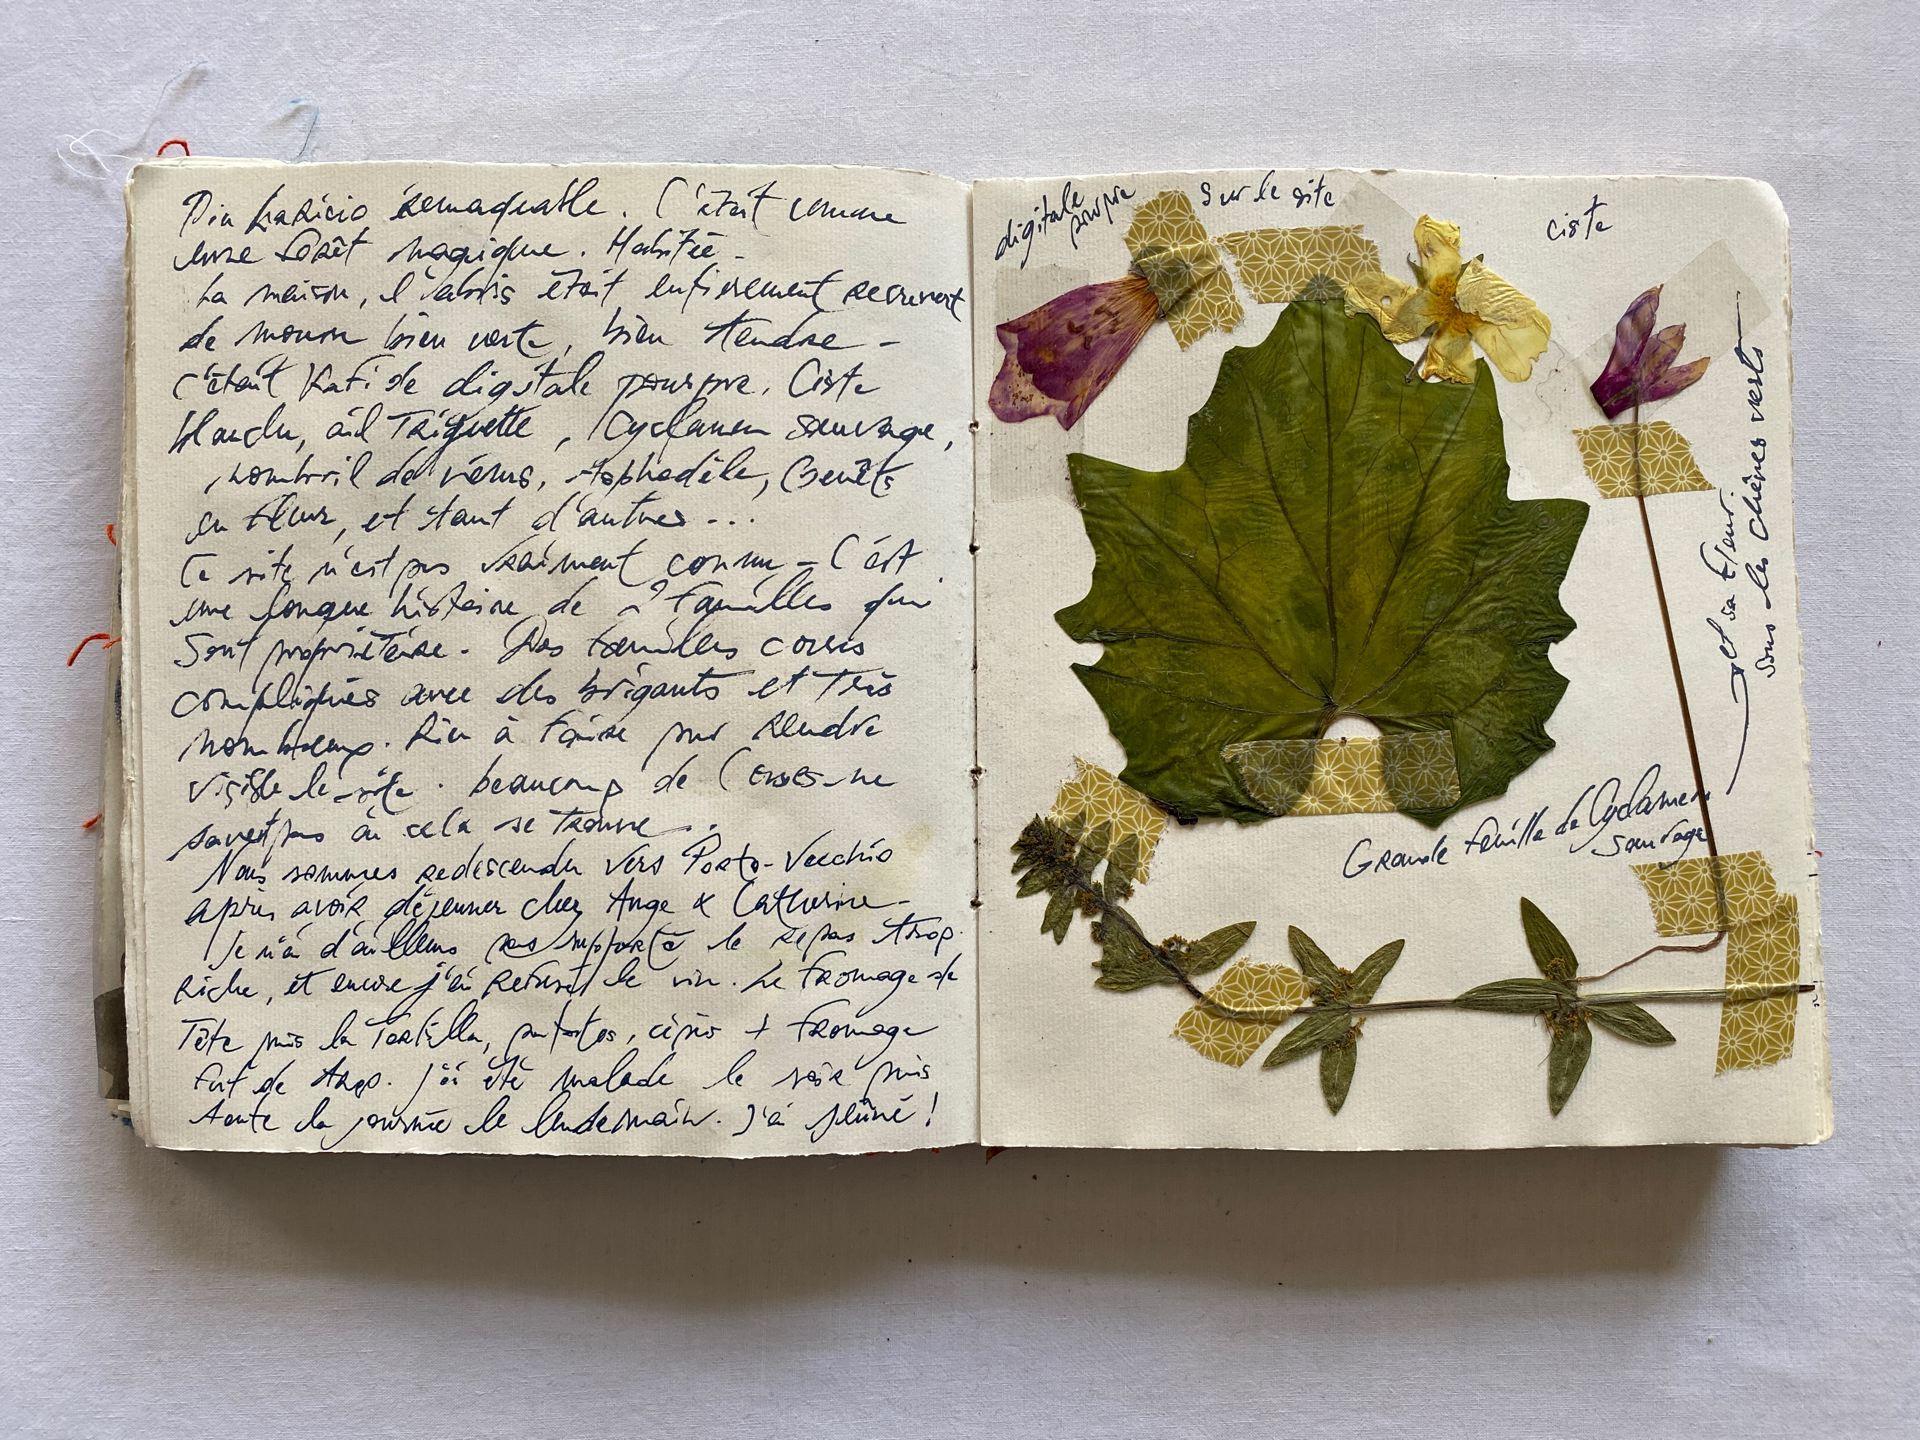 Pin Laricio remarquable. C'était comme
une forêt magique. Habitée.
La maison, l'abris était entièrement recouvert
de mousse bien verte, bien tendre -
C'était de digitale pourpre, Ciste
ail Triquette, Cyclamen sauvage,
nombril de vénus, Asphodèle, Genêts
en fleur, et tant d'autres...
Ce site n'est pas vraiment connu - C'est
une longue histoire de 2 familles qui
sont propriétaire. Des familles corses
compliquées avec des brigants et très
nombreux. Rien à faire pour rendre
visible le site. beaucoup de Corses ne
savent pas où cela se trouve.
Nous sommes redescendu vers Porto-Vecchio
après avoir déjeuner chez Ange & Catherine -
Je n'ai d'ailleurs pas supporté le repas trop
riche, et encore j'ai refusé le vin. Le fromage de
Tête puis la Tortilla, patates, + fromage
fort de Ange. J'ai été malade le soir puis
toute la journée le lendemain. J'ai jeûné!
digitale
pourpre
Sur le site
ciste
et sa fleur
sous les chênes verts
Grande feuille de Cyclamen
sauvage